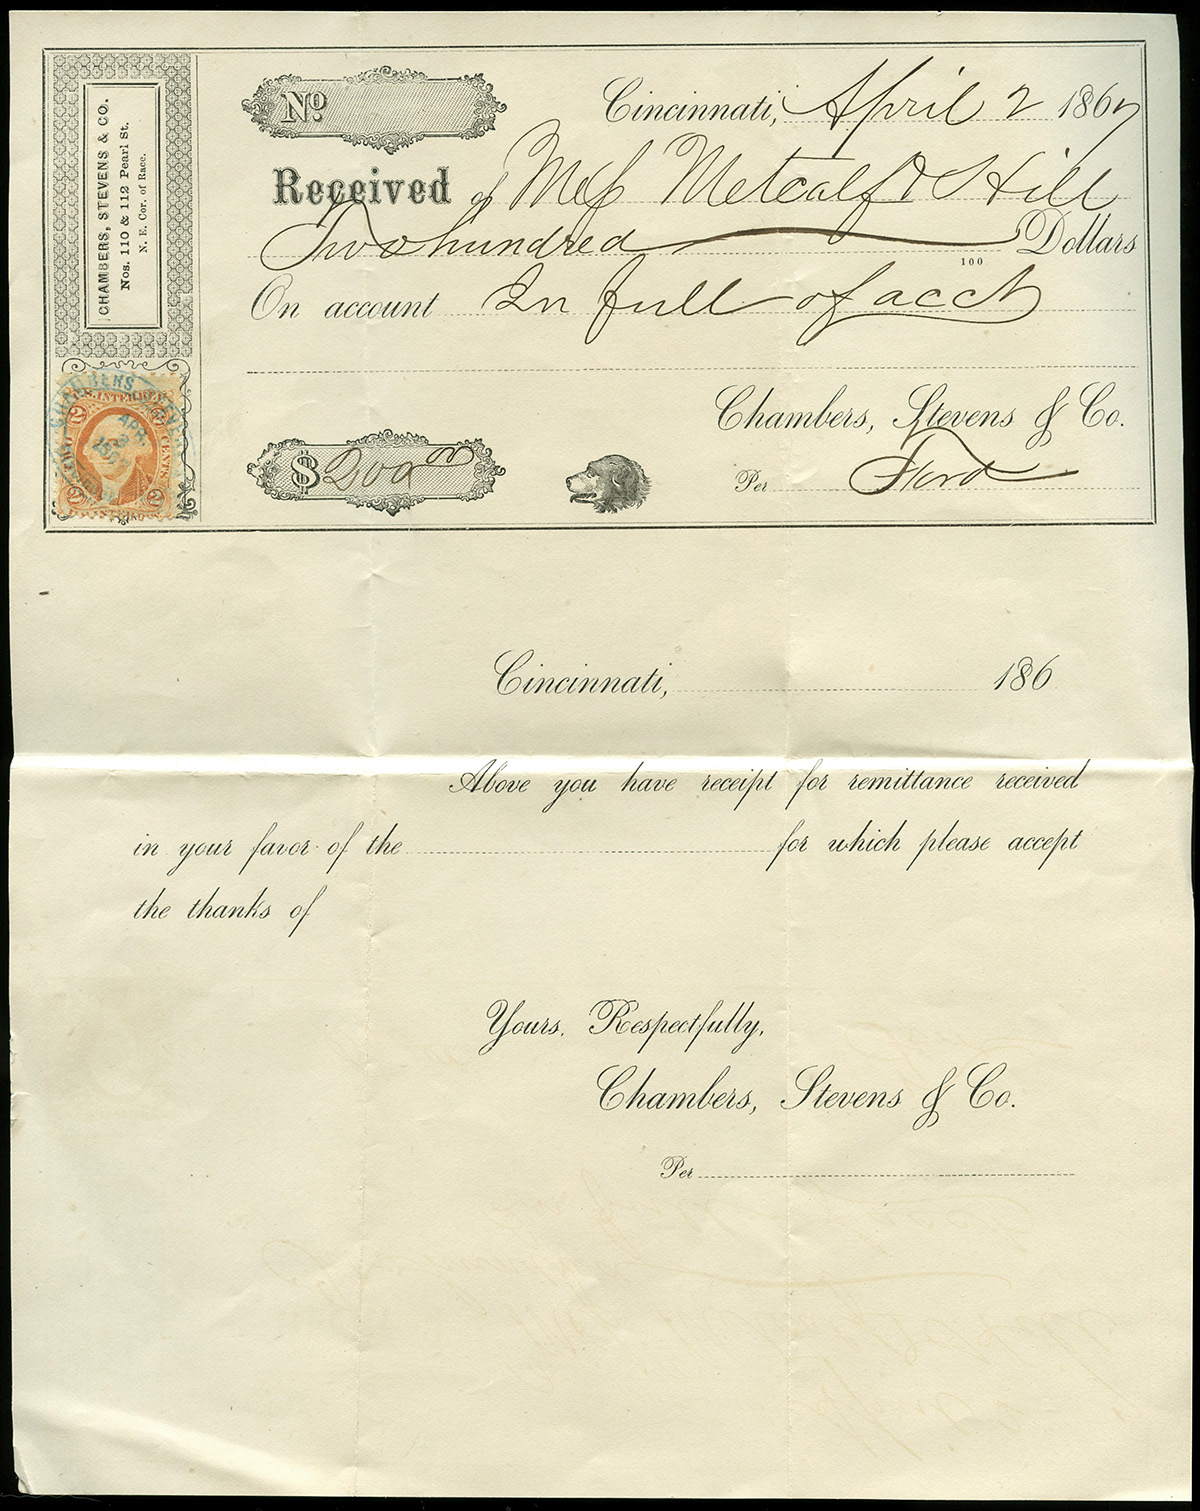 CHAMBERS, STEVENS & CO.
Nos. 110 & 112 Pearl St.
N. E. Cor. of Race.
No
Cincinnati, April 2 1867
Received of Mess Metcalf & Hill
Two hundred Dollars
100
On account In full of acct
Chambers, Stevens & Co.
$ 200 00
Per Ford
CHAMBERS STEVENS
APR.
U.S. INTER. REV.
2 2
CENTS
2 2
Cincinnati, 186
Above you have receipt for remittance received
in your favor of the for which please accept
the thanks of
Yours, Respectfully,
Chambers, Stevens & Co.
Per